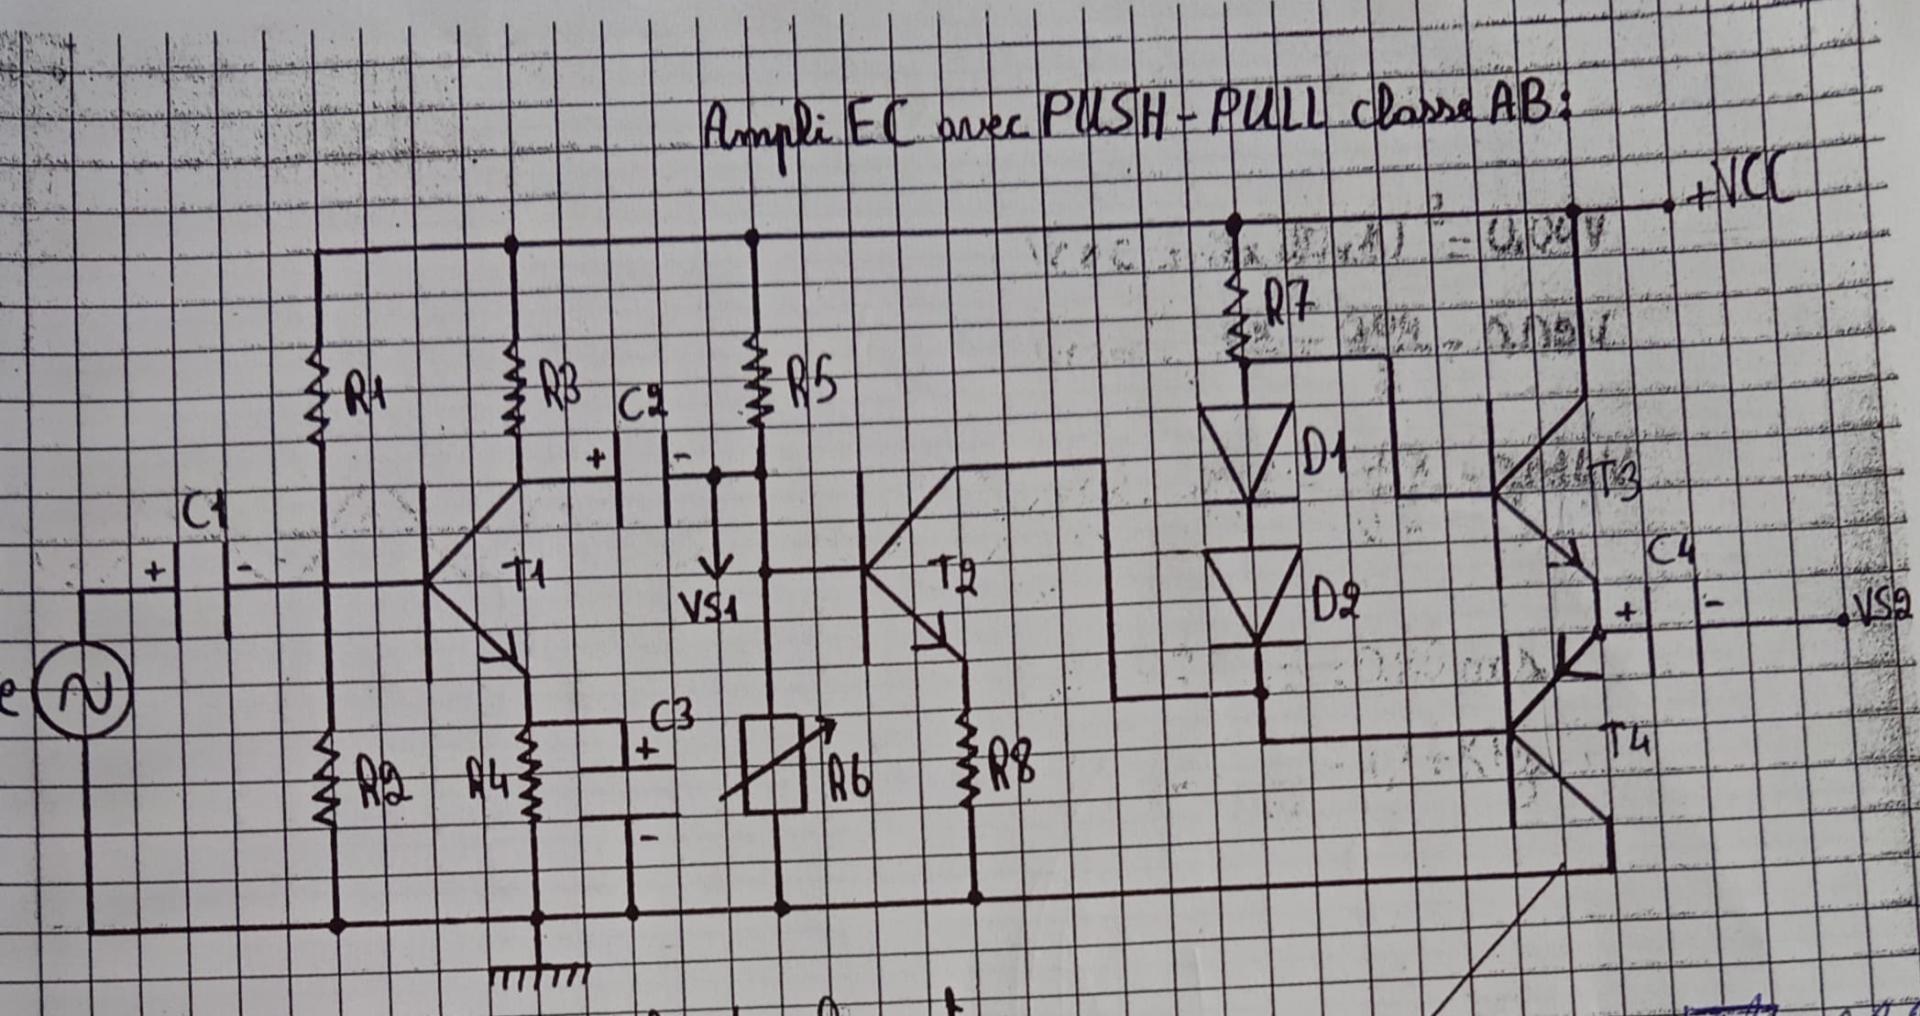 Ampli EC avec PUSH-PULL classe AB:
+VCC
R1
R3
C2
+
-
R5
R7
D1
T3
C1
+
-
T1
VS1
T2
D2
C4
+
-
VS2
e
R2
R4
C3
+
-
R6
R8
T4